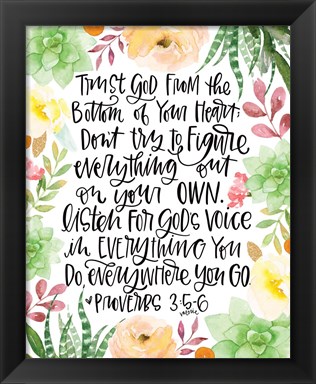 Trust God From the
Bottom of Your Heart;
Don't try to Figure
everything out
on your OWN.
Listen For God's Voice
in EVERYTHING You
Do, everywhere You GO.
♥ PROVERBS 3:5-6